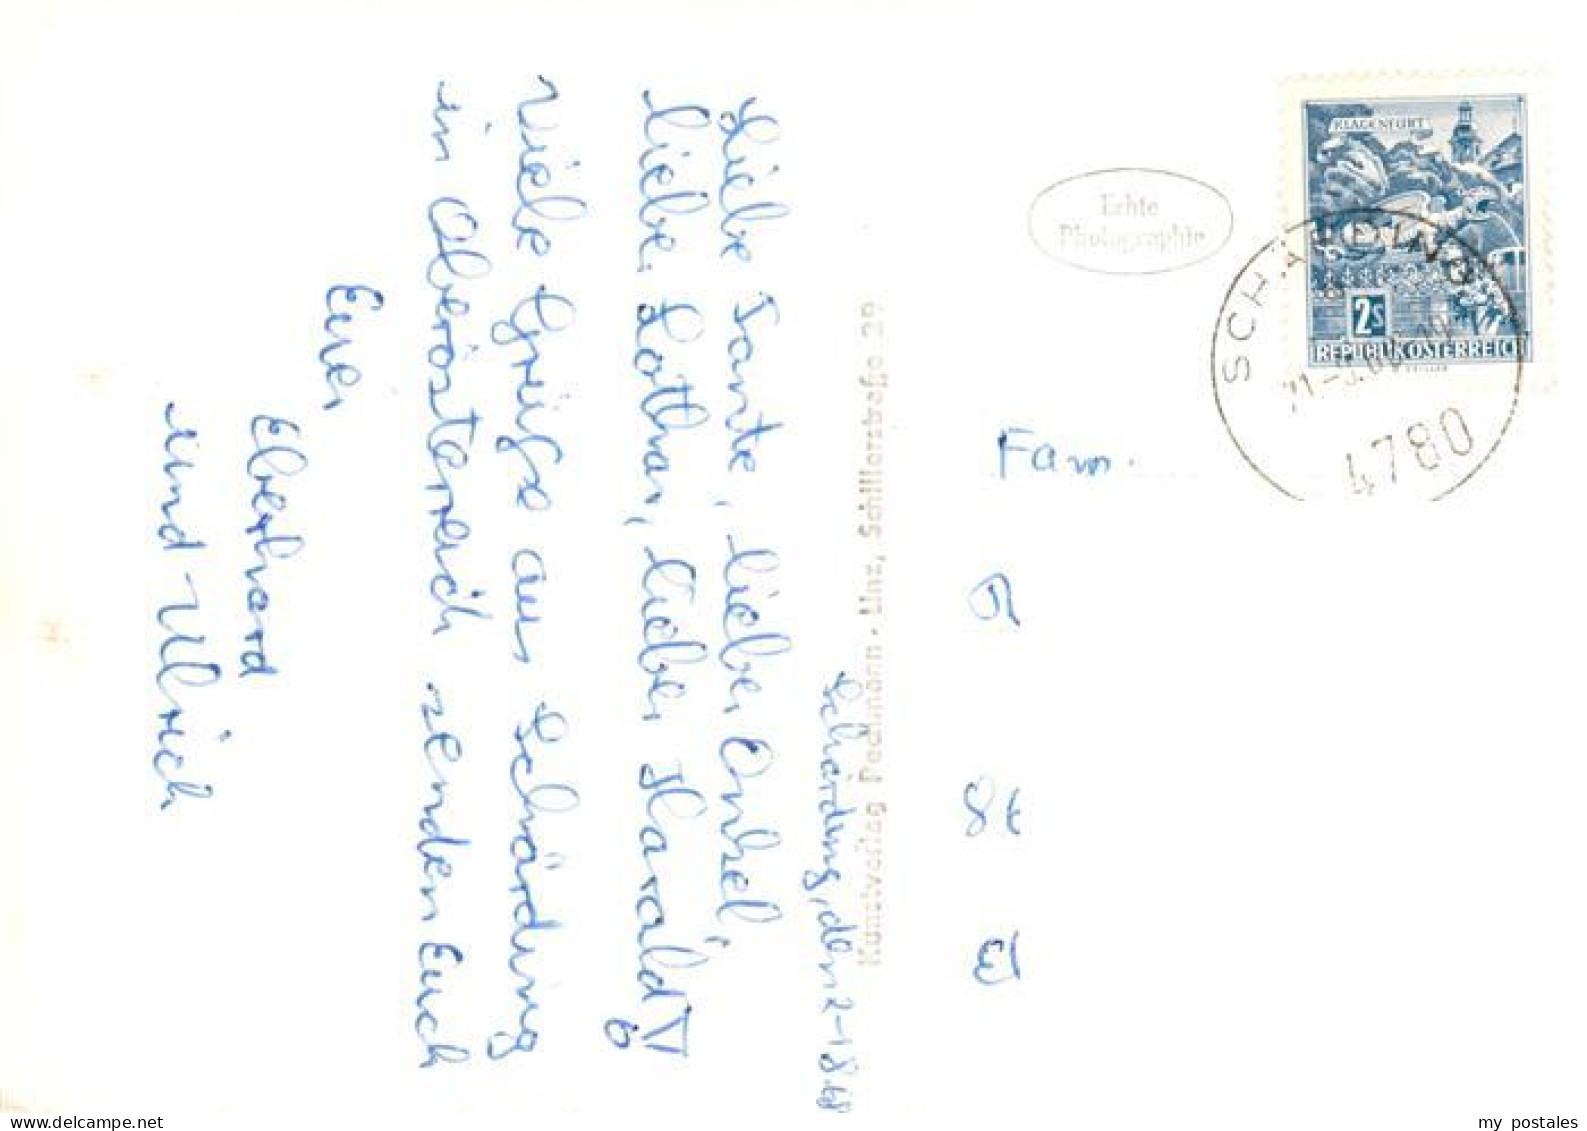 Schärding, den 2-18.68
Liebe Tante, lieber Onkel,
lieber Lothar, lieber Harald!
Viele Grüße aus Schärding
in Oberösterreich senden Euch
Eure
Eberhard
und Ulrich
Kunstverlag Pechmann · Linz, Schillerstraße 29
Echte
Photographie
KLAGENFURT
2S
REPUBLIK ÖSTERREICH
SCHÄRDING
4780
Fam.
St
my postales